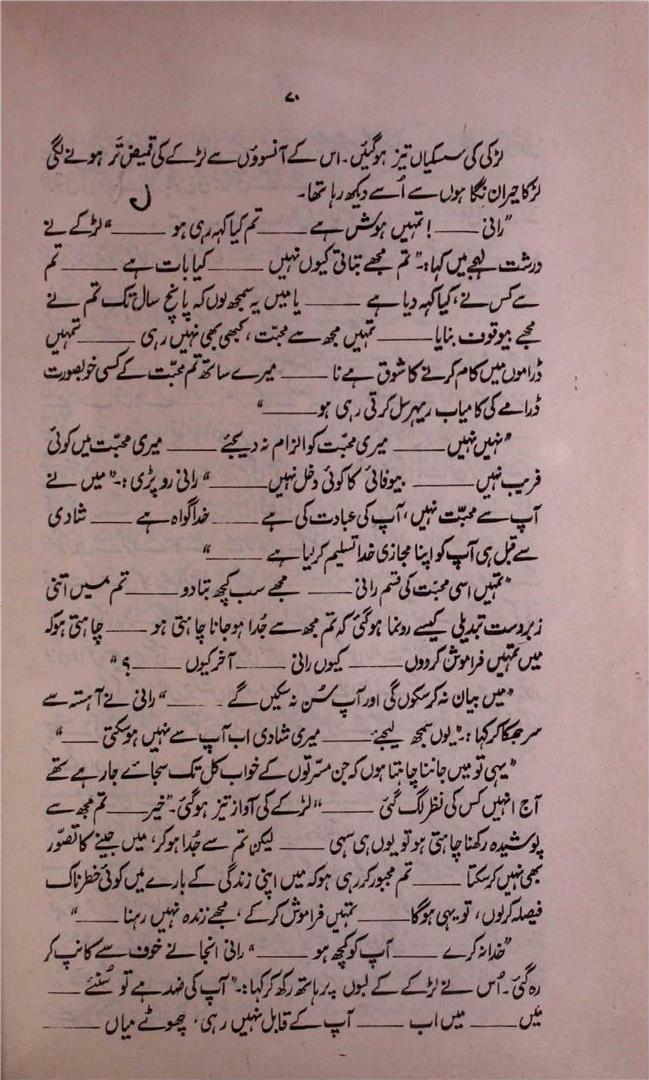 ۷۰
لڑکی کی سسکیاں تیز ہوگئیں۔ اس کے آنسوؤں سے لڑکے کی قمیض تَر ہونے لگی
لڑکا حیران نگاہوں سے اُسے دیکھ رہا تھا۔
”رانی ــــــ ! تمہیں ہوش ہے ــــــ تم کیا کہہ رہی ہو ــــــ“ لڑکے نے
درشت لہجے میں کہا:۔ ”تم مجھے بتاتی کیوں نہیں ــــــ کیا بات ہے ــــــ تم
سے کس نے، کیا کہہ دیا ہے ــــــ یا میں یہ سمجھ لوں کہ پانچ سال تک تم نے
مجھے بیوقوف بنایا ــــــ تمہیں مجھ سے محبت، کبھی بھی نہیں رہی ــــــ تمہیں
ڈراموں میں کام کرنے کا شوق ہے نا ــــــ میرے ساتھ تم محبت کے کسی خوبصورت
ڈرامے کی کامیاب ریہرسل کرتی رہی ہو ــــــ“
”نہیں نہیں ــــــ میری محبت کو الزام نہ دیجئے ــــــ میری محبت میں کوئی
فریب نہیں ــــــ بیوفائی کا کوئی دخل نہیں ــــــ“ رانی رو پڑی:۔ ”میں نے
آپ سے محبّت نہیں، آپ کی عبادت کی ہے ــــــ خدا گواہ ہے ــــــ شادی
سے قبل ہی آپ کو اپنا مجازی خدا تسلیم کرلیا ہے ــــــ“
”تمہیں اسی محبت کی قسم رانی ــــــ مجھے سب کچھ بتادو ــــــ تم میں اتنی
زبردست تبدیلی کیسے رونما ہوگئی کہ تم مجھ سے جُدا ہوجانا چاہتی ہو ــــــ چاہتی ہوکہ
میں تمہیں فراموش کردوں ــــــ کیوں رانی ــــــ آخر کیوں ــــــ؟“
”میں بیان نہ کرسکوں گی اور آپ سُن نہ سکیں گے ــــــ“ رانی نے آہستہ سے
سر جھکا کر کہا:۔ ”یوں سمجھ لیجئے ــــــ میری شادی اب آپ سے نہیں ہوسکتی ــــــ“
”یہی تو میں جاننا چاہتا ہوں کہ جن مسرتوں کے خواب کل تک سجائے جارہے تھے
آج انہیں کس کی نظر لگ گئی ــــــ“ لڑکے کی آواز تیز ہوگئی۔ ”خیر ــــــ تم مجھ سے
پوشیدہ رکھنا چاہتی ہو تو یوں ہی سہی ــــــ لیکن تم سے جُدا ہوکر، میں جینے کا تصوّر
بھی نہیں کرسکتا ــــــ تم مجبور کررہی ہوکہ میں اپنی زندگی کے بارے میں کوئی خطرناک
فیصلہ کرلوں، تو یہی ہوگا ــــــ تمہیں فراموش کرکے، مجھے زندہ نہیں رہنا ــــــ“
”خدا نہ کرے ــــــ آپ کو کچھ ہو ــــــ“ رانی انجانے خوف سے کانپ کر
رہ گئی۔ اُس نے لڑکے کے لبوں پر ہاتھ رکھ کر کہا:۔ ”آپ کی ضد ہے تو سُنئے ــــــ
میں ــــــ میں اب ــــــ آپ کے قابل نہیں رہی، چھوٹے میاں ــــــ